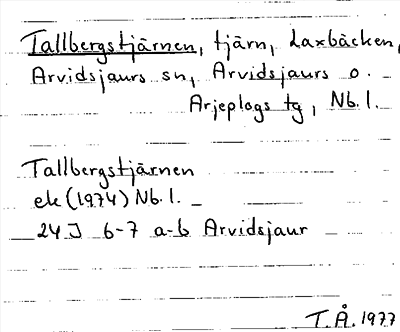 Tallbergstjärnen, tjärn, Laxbäcken,
Arvidsjaurs sn, Arvidsjaurs o.
Arjeplogs tg, Nb. l.
Tallbergstjärnen
ek (1974) Nb. l.
24 J 6-7 a-b Arvidsjaur
T.Å. 1977